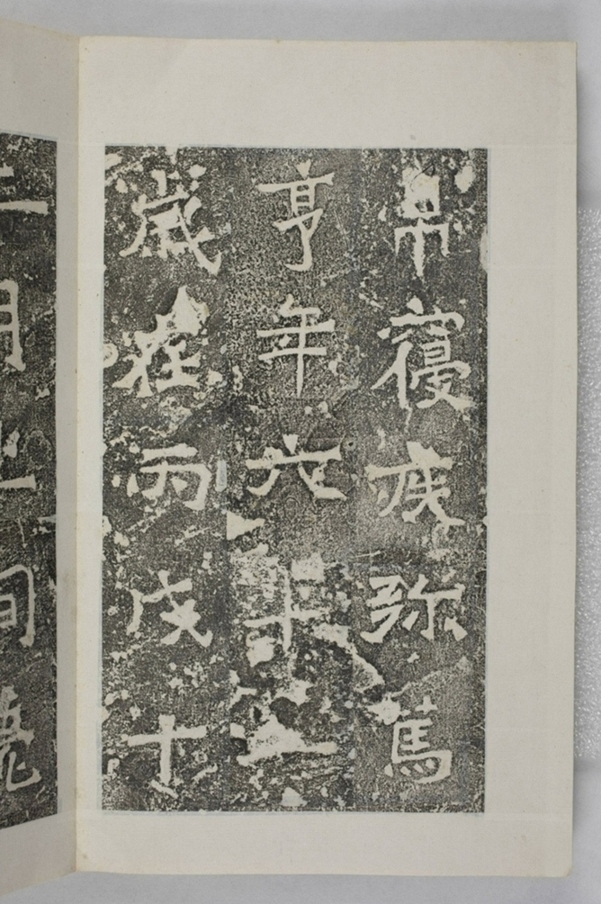 吊寢疾弥篤
享年六十一
歲在丙戌十
二月上旬薨